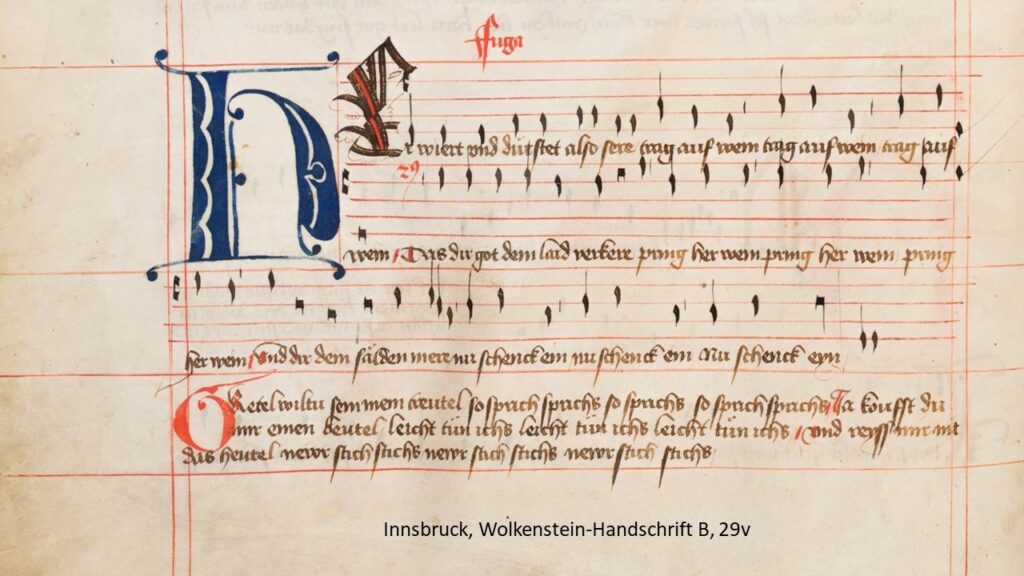 ffuga
HEr wiert vnd dürstet also sere trag auf wein trag auf wein trag auf
wein / Das dir got dein laid verkere pring her wein pring her wein pring
her wein / vnd dir dein sälden mere nu schenck ein nu schenck ein Nu schenck eyn
GRetel wiltu sein mein treutel so sprich sprichs so sprichs so sprich sprichs / Ja koufst du
mir einen beutel leicht tün ichs leicht tün ichs leicht tün ichs / vnd reyss mir nit
das heutel newr stich stichs newr stich stichs newr stich stichs
Innsbruck, Wolkenstein-Handschrift B, 29v